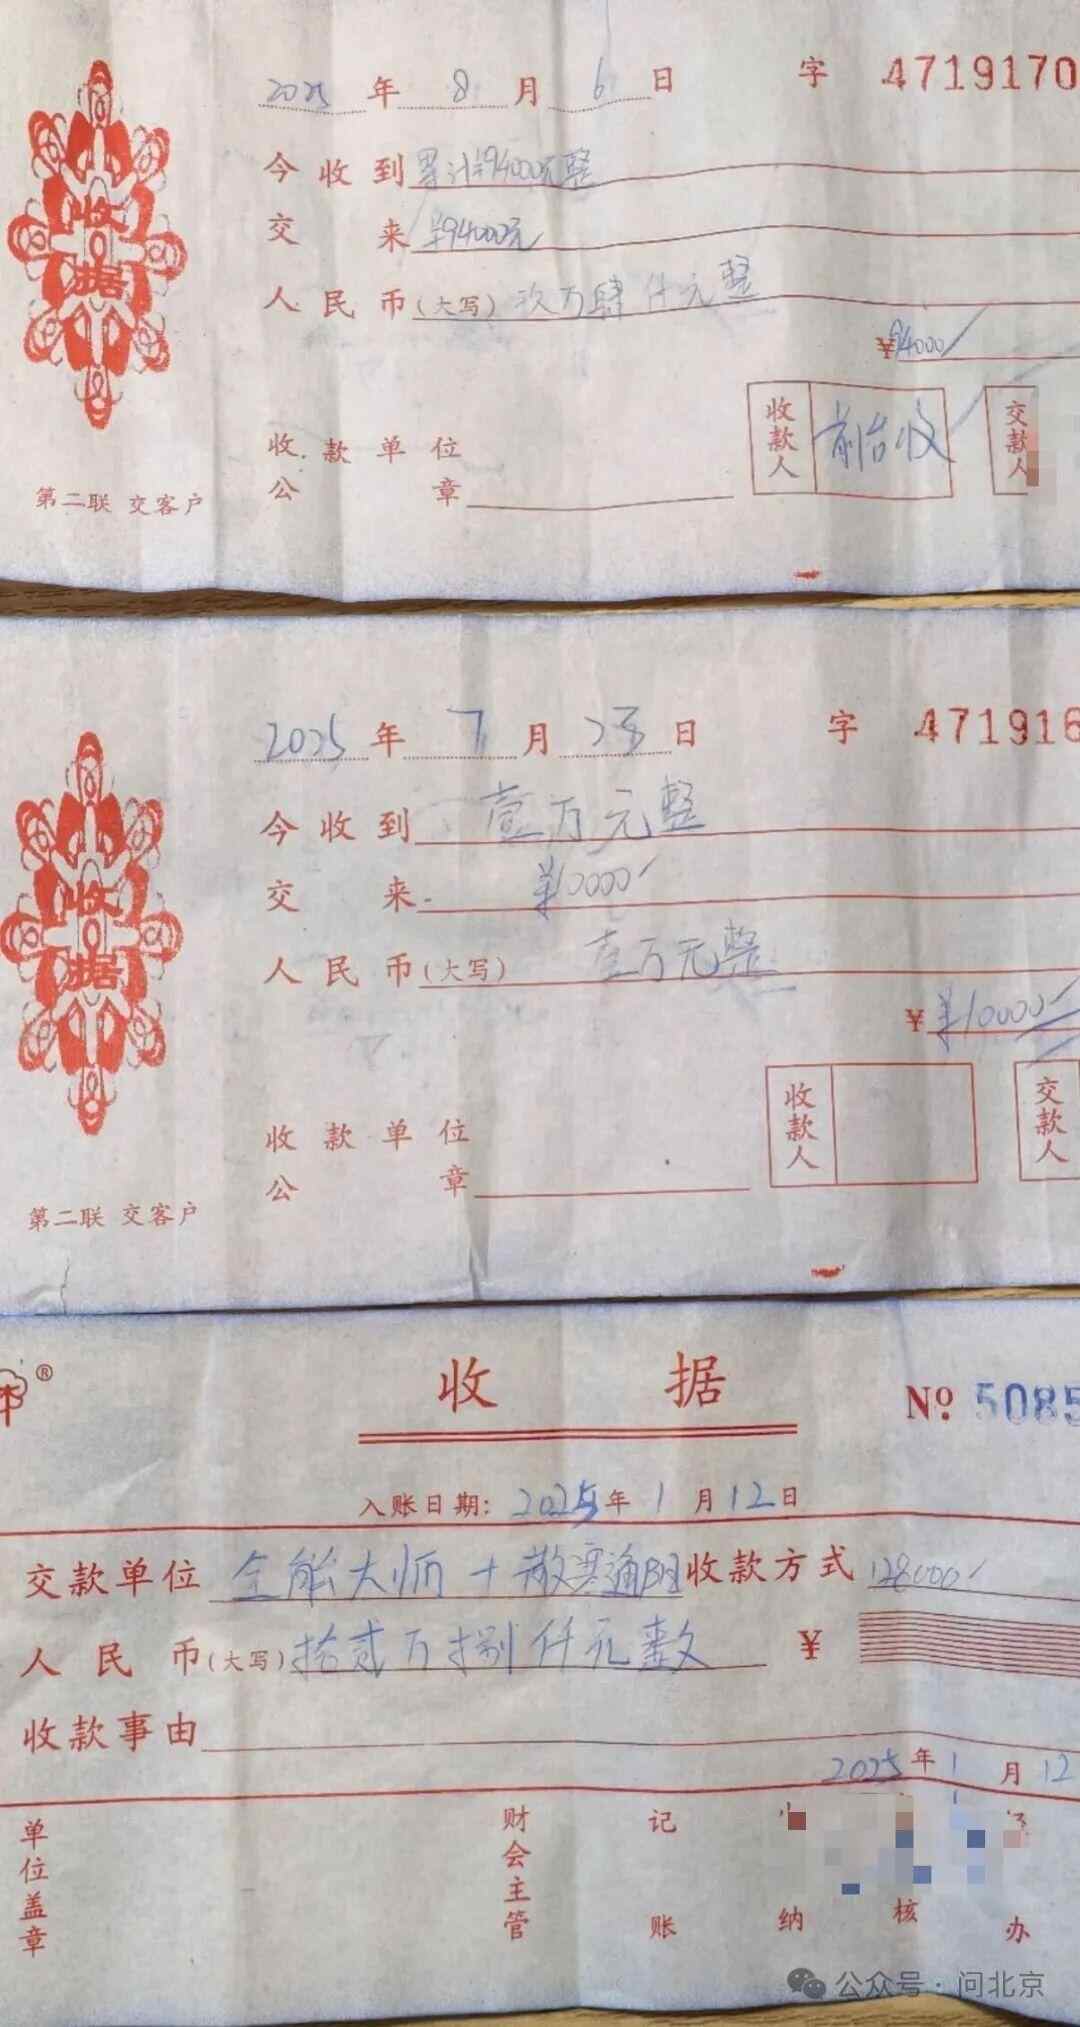 2025年8月6日 字 4719170
今收到累计¥94000元整
交来¥94000元
人民币(大写)玖万肆仟元整
¥94000
收据
收款人 前台收 交款人
收款单位
公章
第二联 交客户
2025年7月23日 字 471916
今收到 壹万元整
交来 ¥10000
人民币(大写) 壹万元整
¥¥10000
收据
收款人 交款人
收款单位
公章
第二联 交客户
®
收据 No. 5085
入账日期: 2025年1月12日
交款单位 全能大师+散寒通阳 收款方式 128000
人民币(大写)拾贰万捌仟元整 ¥
收款事由
2025年1月12
单位盖章 财会主管 记账 纳 核 办
公众号·问北京